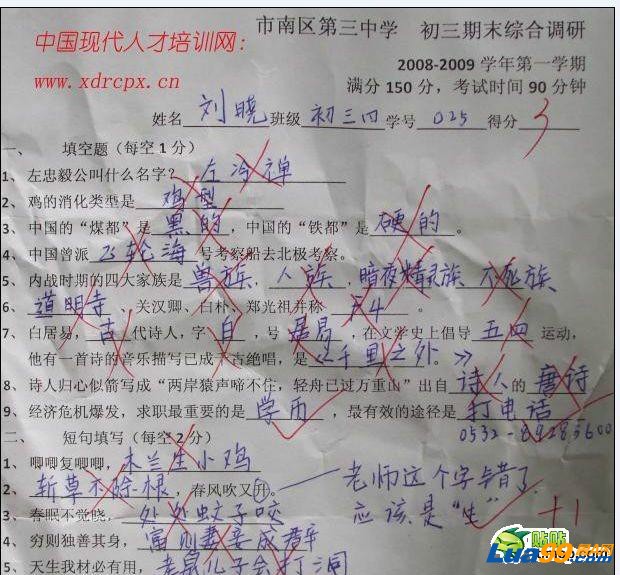 中国现代人才培训网:
www.xdrcpx.cn
市南区第三中学 初三期末综合调研
2008-2009 学年第一学期
满分 150 分，考试时间 90 分钟
姓名 刘晓 班级 初三四 学号 025 得分 3
一、 填空题（每空 1 分）
1、左忠毅公叫什么名字？ 左冷禅
2、鸡的消化类型是 鸡型
3、中国的“煤都”是 黑的 ，中国的“铁都”是 硬的 。
4、中国曾派 飞轮海 号考察船去北极考察。
5、内战时期的四大家族是 兽族， 人族 ，暗夜精灵族 不死族
6、 道明寺 、关汉卿、白朴、郑光祖并称 F4 。
7、白居易， 古 代诗人，字 白 ，号 居易 ，在文学史上倡导 五四 运动，
他有一首诗的音乐描写已成千古绝唱，是 《千里之外。》
8、诗人归心似箭写成“两岸猿声啼不住，轻舟已过万重山”出自 诗人 的 唐诗
9、经济危机爆发，求职最重要的是 学历 ，最有效的途径是 打电话
0532-89285600
二、 短句填写（每空 2 分）
1、唧唧复唧唧， 木兰生小鸡
2、 斩草不除根 ，春风吹又升。 老师这个字错了，
应该是“生” +1
3、春眠不觉晓， 处处蚊子咬
4、穷则独善其身， 富则妻妾成群
5、天生我材必有用， 老鼠儿子会打洞